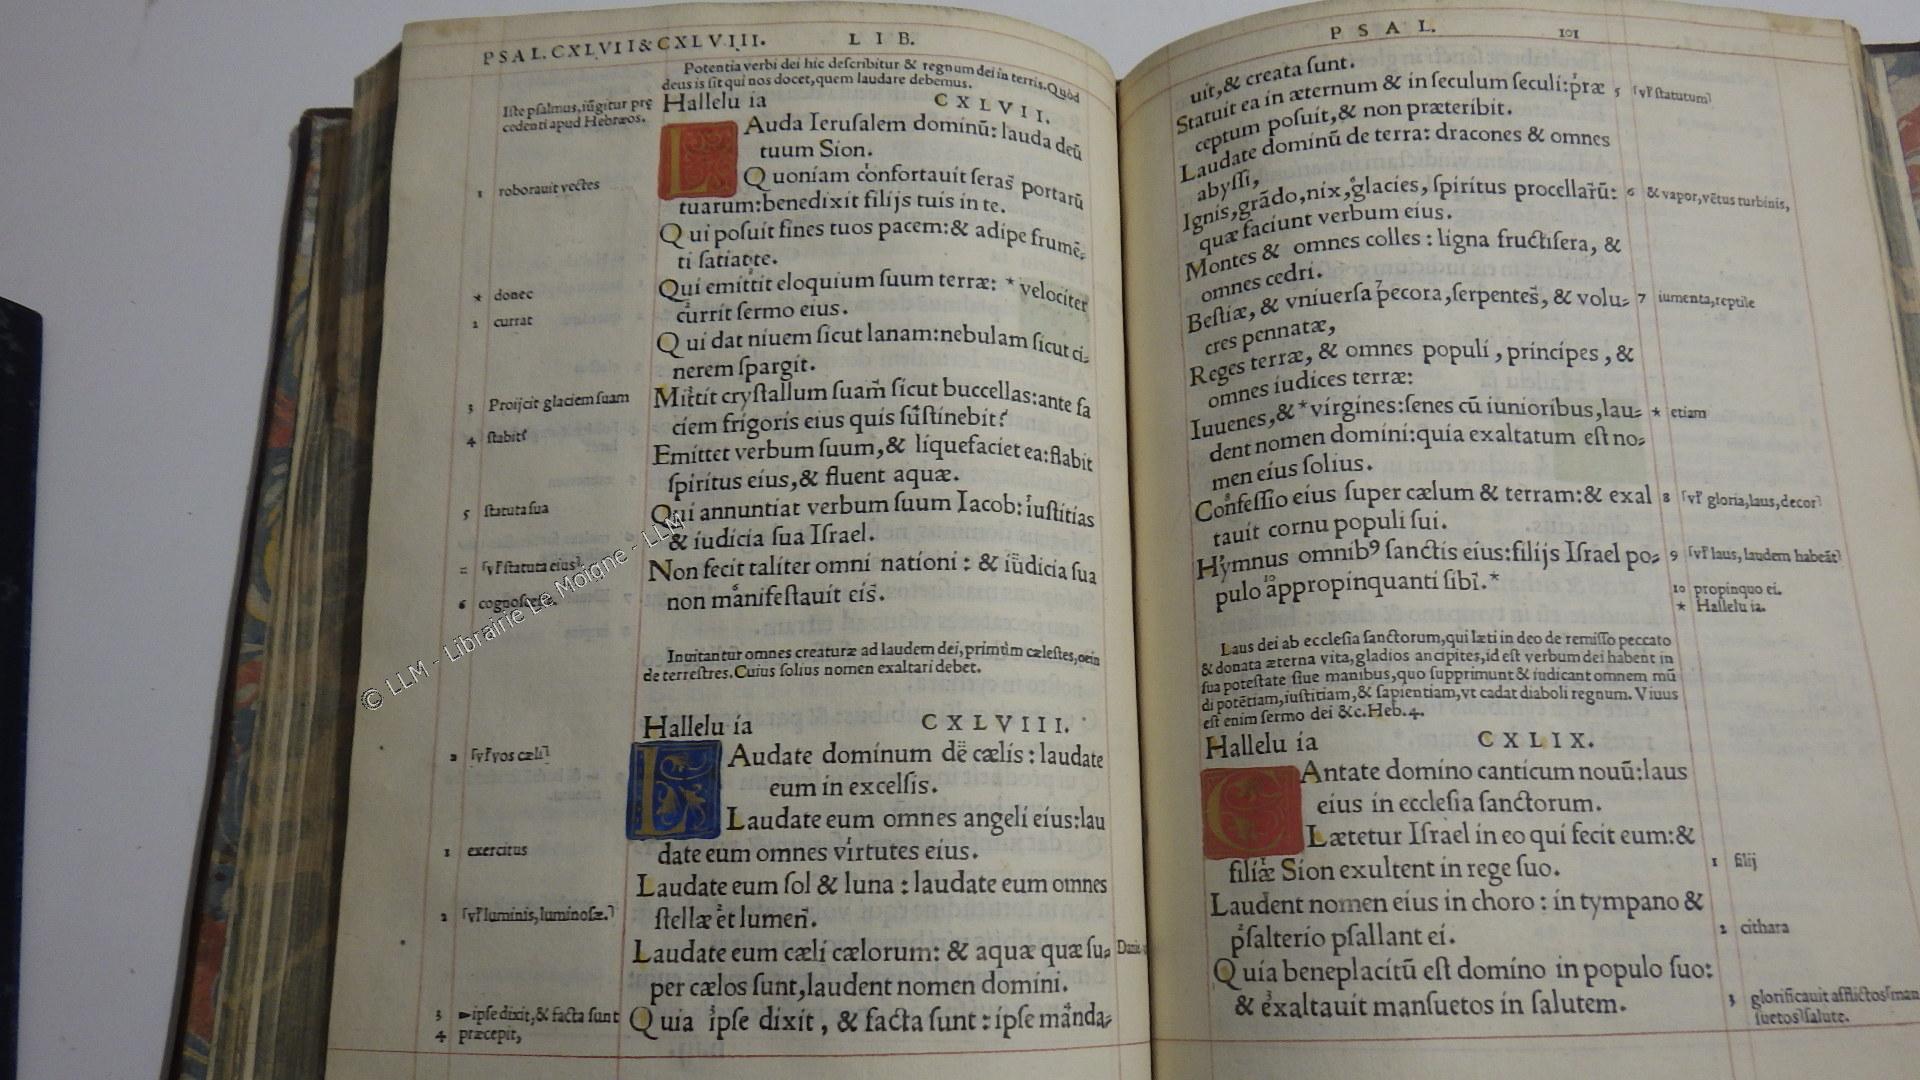 PSAL. CXLVII & CXLVIII. LIB.
Potentia verbi dei hic deſcribitur & regnum dei in terris. Quòd
deus is ſit qui nos docet, quem laudare debemus.
Iſte pſalmus, iūgitur prę
cedenti apud Hebræos.
Hallelu ia CXLVII.
LAuda Ieruſalem dominū: lauda deū
tuum Sion.
Quoniam confortauit ſeras portarū
1 roborauit vectes
tuarum: benedixit filijs tuis in te.
Qui poſuit fines tuos pacem: & adipe frumē-
ti ſatiat te.
Qui emittit eloquium ſuum terræ: * velociter
* donec
currit ſermo eius.
2 currat
Qui dat niuem ſicut lanam: nebulam ſicut ci-
nerem ſpargit.
Mittit cryſtallum ſuam ſicut buccellas: ante fa
3 Proijcit glaciem ſuam
ciem frigoris eius quis ſuſtinebit?
4 ſtabit?
Emittet verbum ſuum, & liquefaciet ea: flabit
ſpiritus eius, & fluent aquæ.
Qui annuntiat verbum ſuum Iacob: iuſtitias
5 ſtatuta ſua
& iudicia ſua Iſrael.
Non fecit taliter omni nationi: & iudicia ſua
= ſtatuta eius
non manifeſtauit eis.
6
Inuitantur omnes creaturæ ad laudem dei, primùm cæleſtes,
de terreſtres. Cuius ſolius nomen exaltari debet.
Hallelu ia CXLVIII.
LAudate dominum de cælis: laudate
vos cæli
eum in excelſis.
Laudate eum omnes angeli eius: lau
date eum omnes virtutes eius.
1 exercitus
Laudate eum ſol & luna: laudate eum omnes
ſtellæ et lumen.
2 luminis, luminoſæ.
Laudate eum cæli cælorum: & aquæ quæ ſu-
per cælos ſunt, laudent nomen domini.
Quia ipſe dixit, & facta ſunt: ipſe manda-
3 ipſe dixit, & facta ſunt
4 præcepit,
© LLM - Librairie Le Moigne - LLM
PSAL. 101
uit, & creata ſunt.
Statuit ea in æternum & in ſeculum ſeculi: præ
5 ſtatutum
ceptum poſuit, & non præteribit.
Laudate dominū de terra: dracones & omnes
abyſſi,
Ignis, grādo, nix, glacies, ſpiritus procellarū:
6 & vapor, vētus turbinis,
quæ faciunt verbum eius.
Montes & omnes colles: ligna fructifera, &
omnes cedri.
Beſtiæ, & vniuerſa pecora, ſerpentes, & volu-
7 iumenta, reptile
cres pennatæ,
Reges terræ, & omnes populi, principes, &
omnes iudices terræ:
Iuuenes, & * virgines: ſenes cū iunioribus, lau-
* etiam
dent nomen domini: quia exaltatum eſt no-
men eius ſolius.
Confeſſio eius ſuper cælum & terram: & exal
8 gloria, laus, decor
tauit cornu populi ſui.
Hymnus omnibꝰ ſanctis eius: filijs Iſrael po-
9 laus, laudem habeāt
pulo appropinquanti ſibi. *
10 propinquo ei.
* Hallelu ia.
Laus dei ab eccleſia ſanctorum, qui læti in deo de remiſſo peccato
& donata æterna vita, gladios ancipites, id eſt verbum dei habent in
ſua poteſtate ſiue manibus, quo ſupprimunt & iudicant omnem mū
di potētiam, iuſtitiam, & ſapientiam, vt cadat diaboli regnum. Viuus
eſt enim ſermo dei &c. Heb. 4.
Hallelu ia CXLIX.
CAntate domino canticum nouū: laus
eius in eccleſia ſanctorum.
Lætetur Iſrael in eo qui fecit eum: &
filiæ Sion exultent in rege ſuo.
1 filij
Laudent nomen eius in choro: in tympano &
pſalterio pſallant ei.
2 cithara
Quia beneplacitū eſt domino in populo ſuo:
& exaltauit manſuetos in ſalutem.
3 glorificauit afflictos man
ſuetos ſalute.